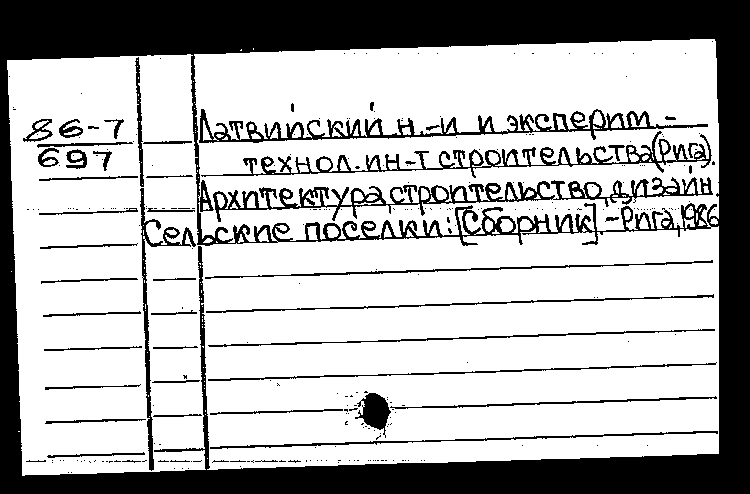 86-7
697
Латвийский н.-и и эксперим.-
технол. ин-т строительства (Рига).
Архитектура, строительство, дизайн.
Сельские поселки: [Сборник]. - Рига, 1986